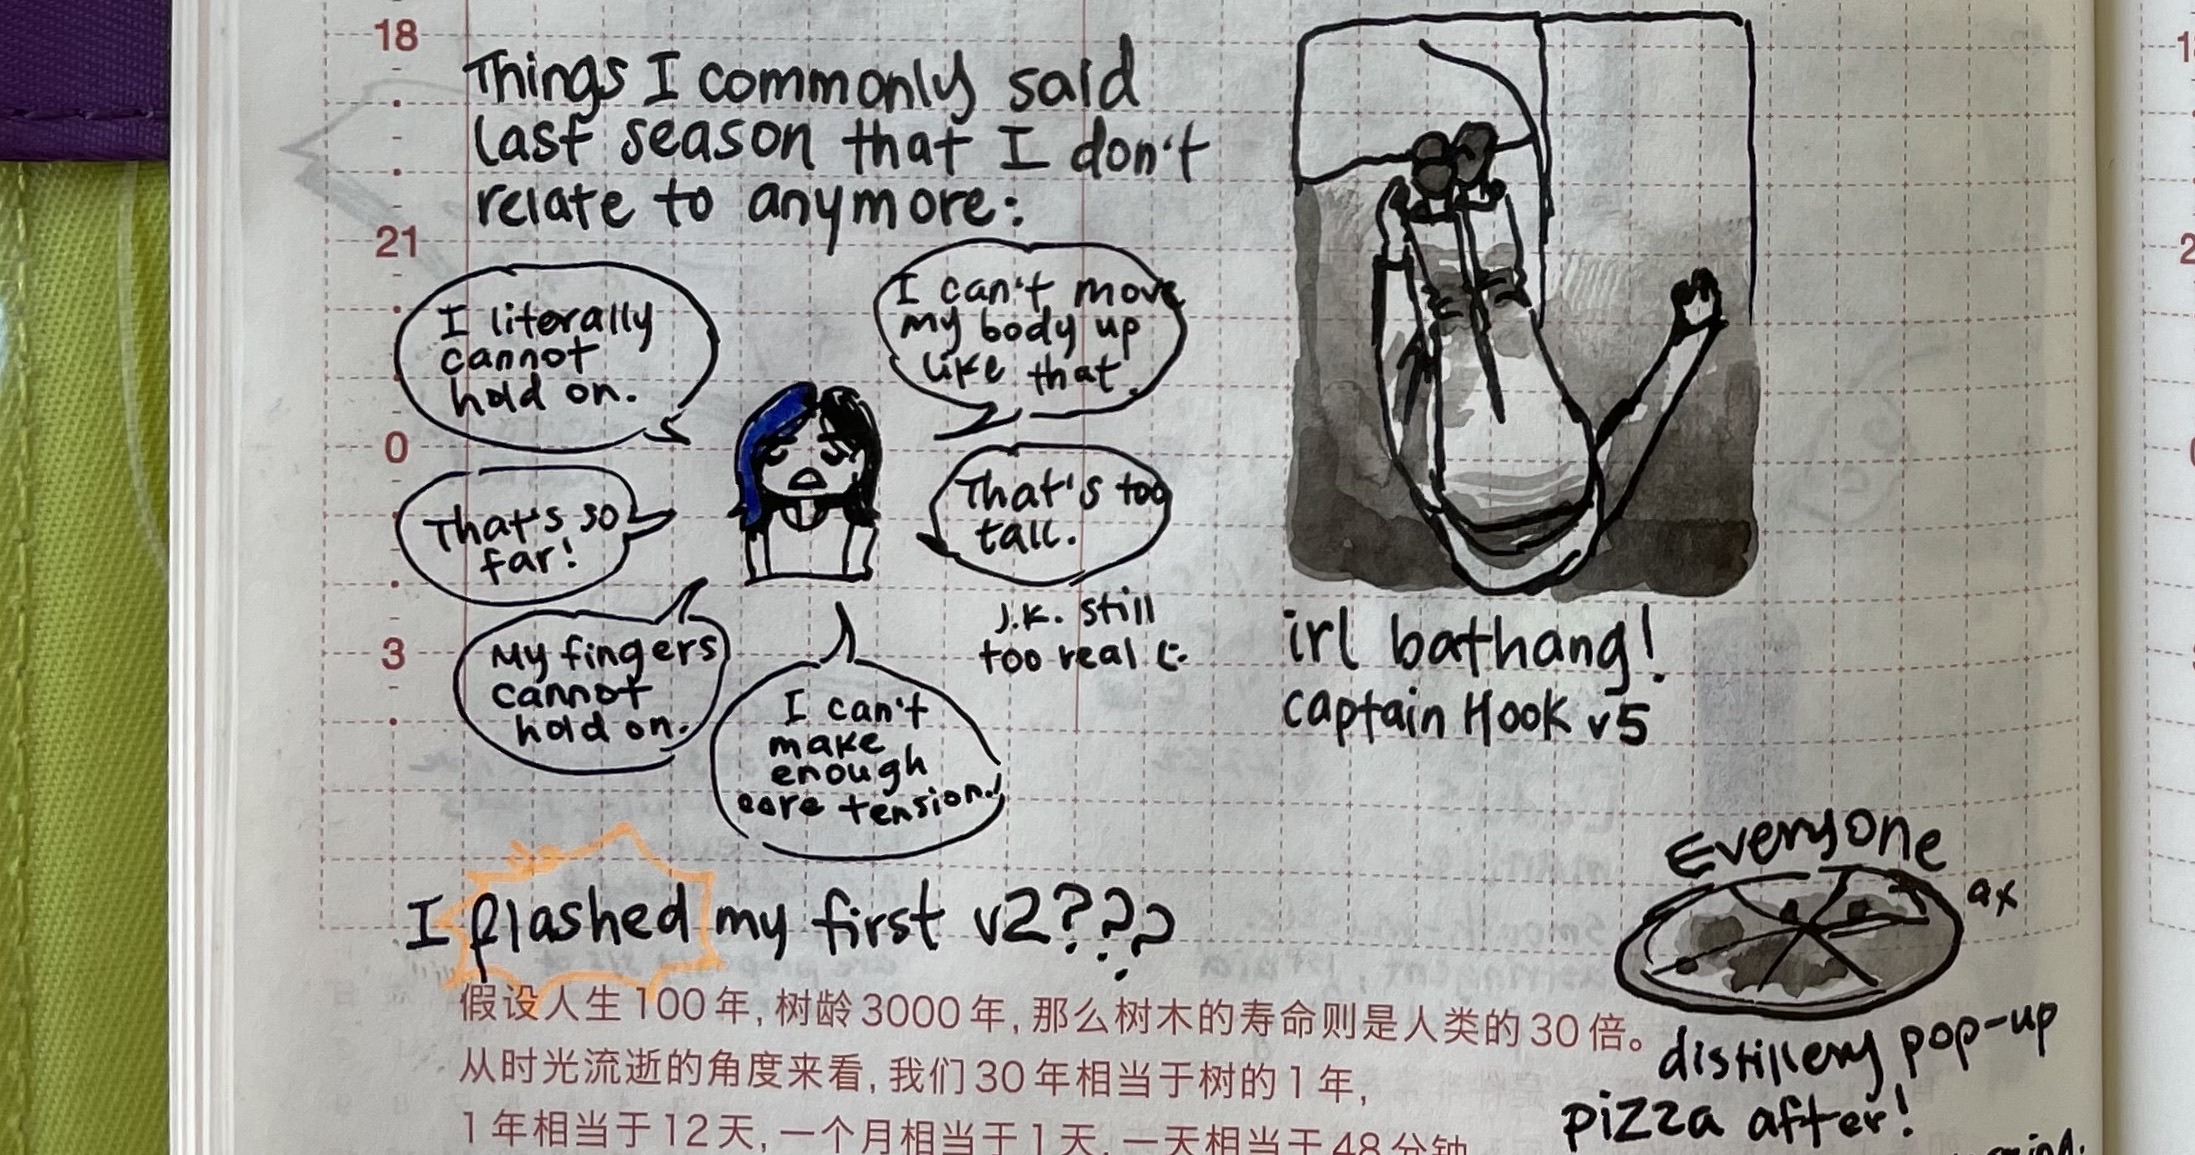 18
21
0
3
Things I commonly said
last season that I don't
relate to anymore:
I literally
cannot
hold on.
I can't move
my body up
like that.
That's so
far!
That's too
tall.
J.K. still
too real (:
My fingers
cannot
hold on.
I can't
make
enough
core tension.
irl bathang!
captain Hook v5
I flashed my first v2???
Everyone
ax
distillery pop-up
pizza after!
假设人生100年,树龄3000年,那么树木的寿命则是人类的30倍。
从时光流逝的角度来看,我们30年相当于树的1年,
1年相当于12天,一个月相当于1天,一天相当于48分钟